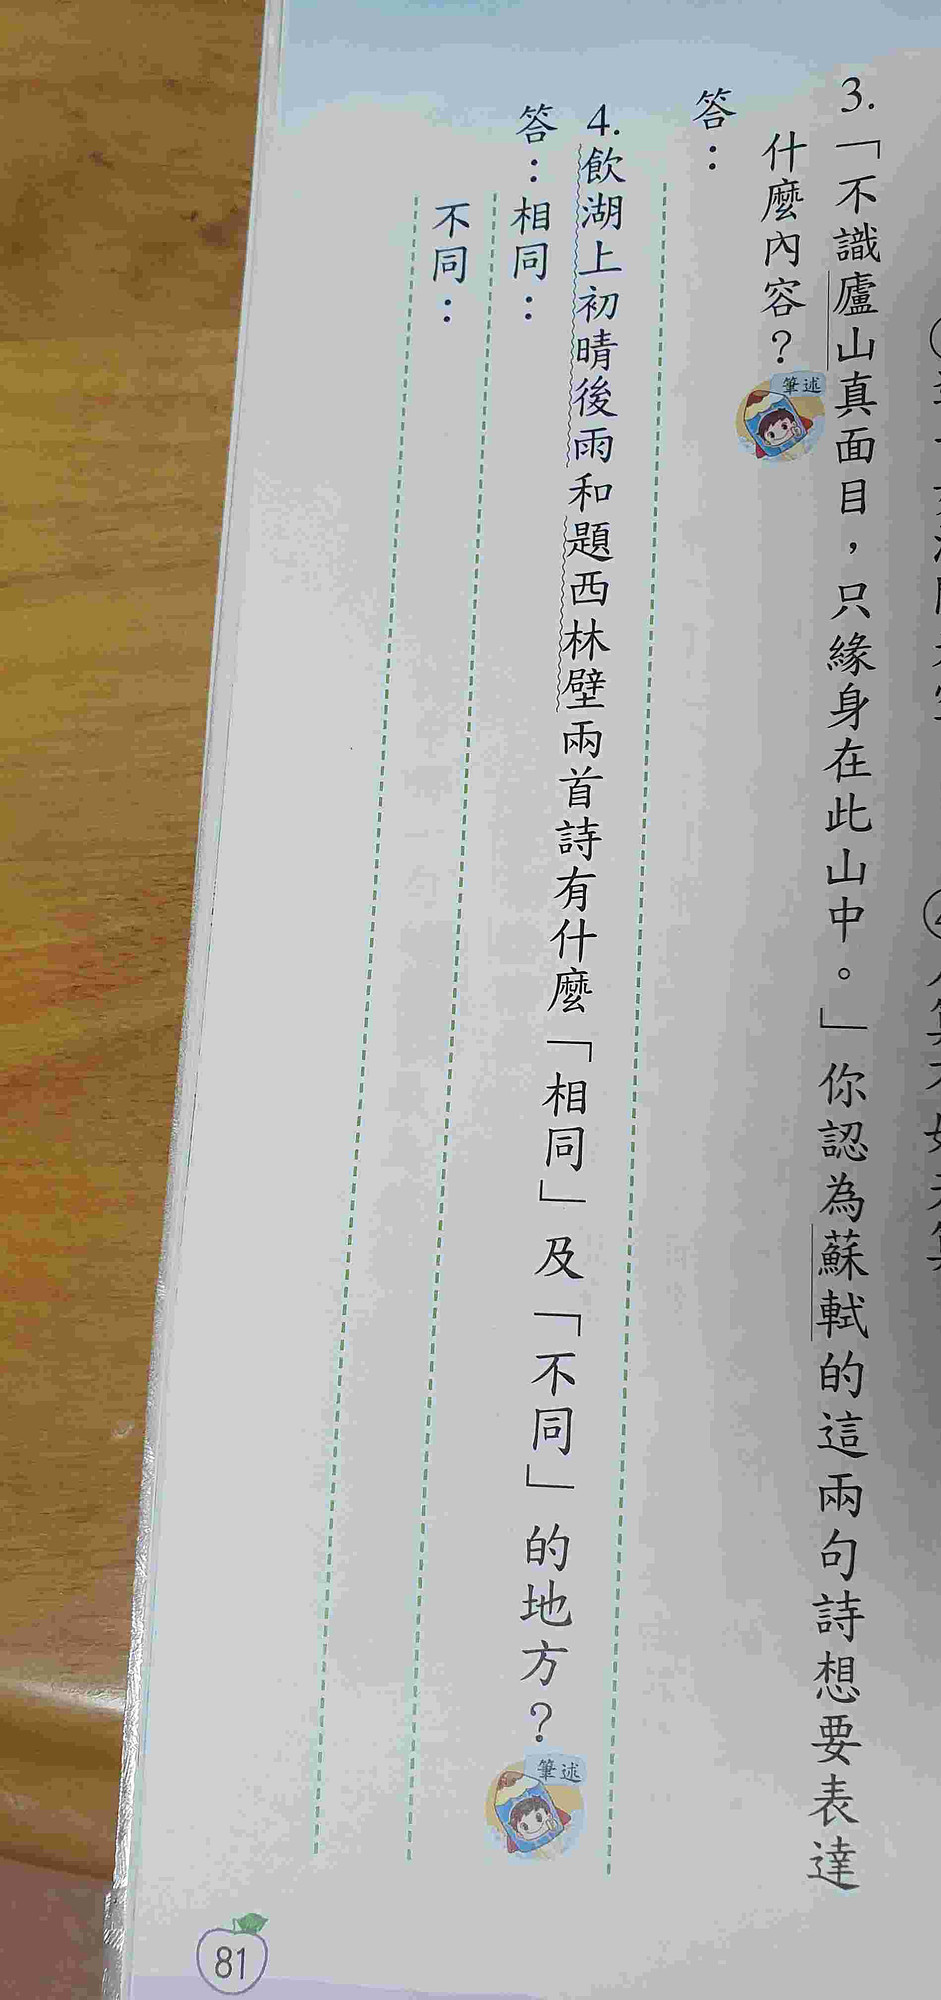 3.「不識廬山真面目，只緣身在此山中。」你認為蘇軾的這兩句詩想要表達
什麼內容？筆述
答：
4.飲湖上初晴後雨和題西林壁兩首詩有什麼「相同」及「不同」的地方？筆述
答：相同：
不同：
81